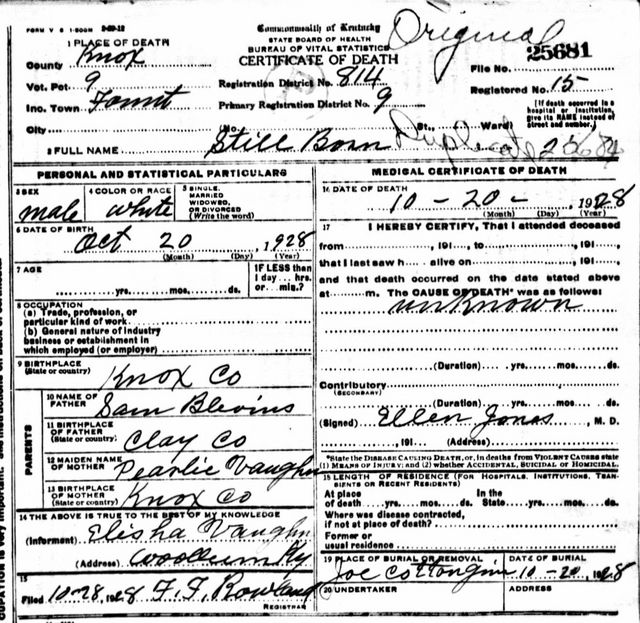 FORM V S 1-500M 5-29-12
Commonwealth of Kentucky
STATE BOARD OF HEALTH
BUREAU OF VITAL STATISTICS
CERTIFICATE OF DEATH
Original
1 PLACE OF DEATH
County Knox
Vot. Pct. 9
Inc. Town
City
Registration District No. 814
Primary Registration District No. 9
File No. 25681
Registered No. 15
[If death occurred in a
hospital or institution,
give its NAME instead of
street and number.]
(No. St., Ward)
2 FULL NAME Still Born Duplicate
PERSONAL AND STATISTICAL PARTICULARS
3 SEX male
4 COLOR OR RACE white
5 SINGLE, MARRIED WIDOWED, OR DIVORCED (Write the word)
6 DATE OF BIRTH
Oct 20, 1928
(Month) (Day) (Year)
7 AGE
yrs. mos. ds.
IF LESS than
1 day... hrs.
or... min.?
8 OCCUPATION
(a) Trade, profession, or
particular kind of work
(b) General nature of industry
business or establishment in
which employed (or employer)
9 BIRTHPLACE
(State or country) Knox Co
PARENTS
10 NAME OF
FATHER Sam Blevins
11 BIRTHPLACE
OF FATHER
(State or country) Clay Co
12 MAIDEN NAME
OF MOTHER Pearlie Vaughn
13 BIRTHPLACE
OF MOTHER
(State or country) Knox Co
14 THE ABOVE IS TRUE TO THE BEST OF MY KNOWLEDGE
(Informant) Elisha Vaughn
(Address) Woollum Ky
15
Filed 10-28, 1928 F. F. Rowland
REGISTRAR
MEDICAL CERTIFICATE OF DEATH
16 DATE OF DEATH
10 - 20 -, 1928
(Month) (Day) (Year)
17 I HEREBY CERTIFY, That I attended deceased
from, 191, to, 191,
that I last saw h alive on, 191,
and that death occurred on the date stated above
at m. The CAUSE OF DEATH* was as follows:
unknown
(Duration) yrs. mos. ds.
Contributory
(SECONDARY)
(Duration) yrs. mos. ds.
(Signed) Ellen Jones, M. D.
, 191 (Address)
*State the DISEASE CAUSING DEATH, or, in deaths from VIOLENT CAUSES state
(1) MEANS OF INJURY; and (2) whether ACCIDENTAL, SUICIDAL or HOMICIDAL.
18 LENGTH OF RESIDENCE (FOR HOSPITALS, INSTITUTIONS, TRANSIENTS OR RECENT RESIDENTS)
At place In the
of death yrs. mos. ds. State yrs. mos. ds.
Where was disease contracted,
if not at place of death?
Former or
usual residence
19 PLACE OF BURIAL OR REMOVAL
Joe Cottongim
DATE OF BURIAL
10-20, 1928
20 UNDERTAKER
ADDRESS